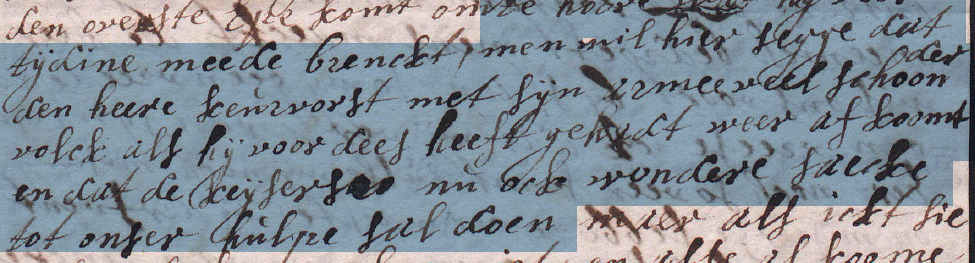 den overste comt omte hoore
tijdine meede brenckt, men wil hier segge dat
den heere keurvorst met sijn armee veel schoonder
volck als hij voor dees heeft gehadt weer af koomt
en dat de keijserse nu ock wondere saecke
tot onser hulpe sal doen maer als ickt sie